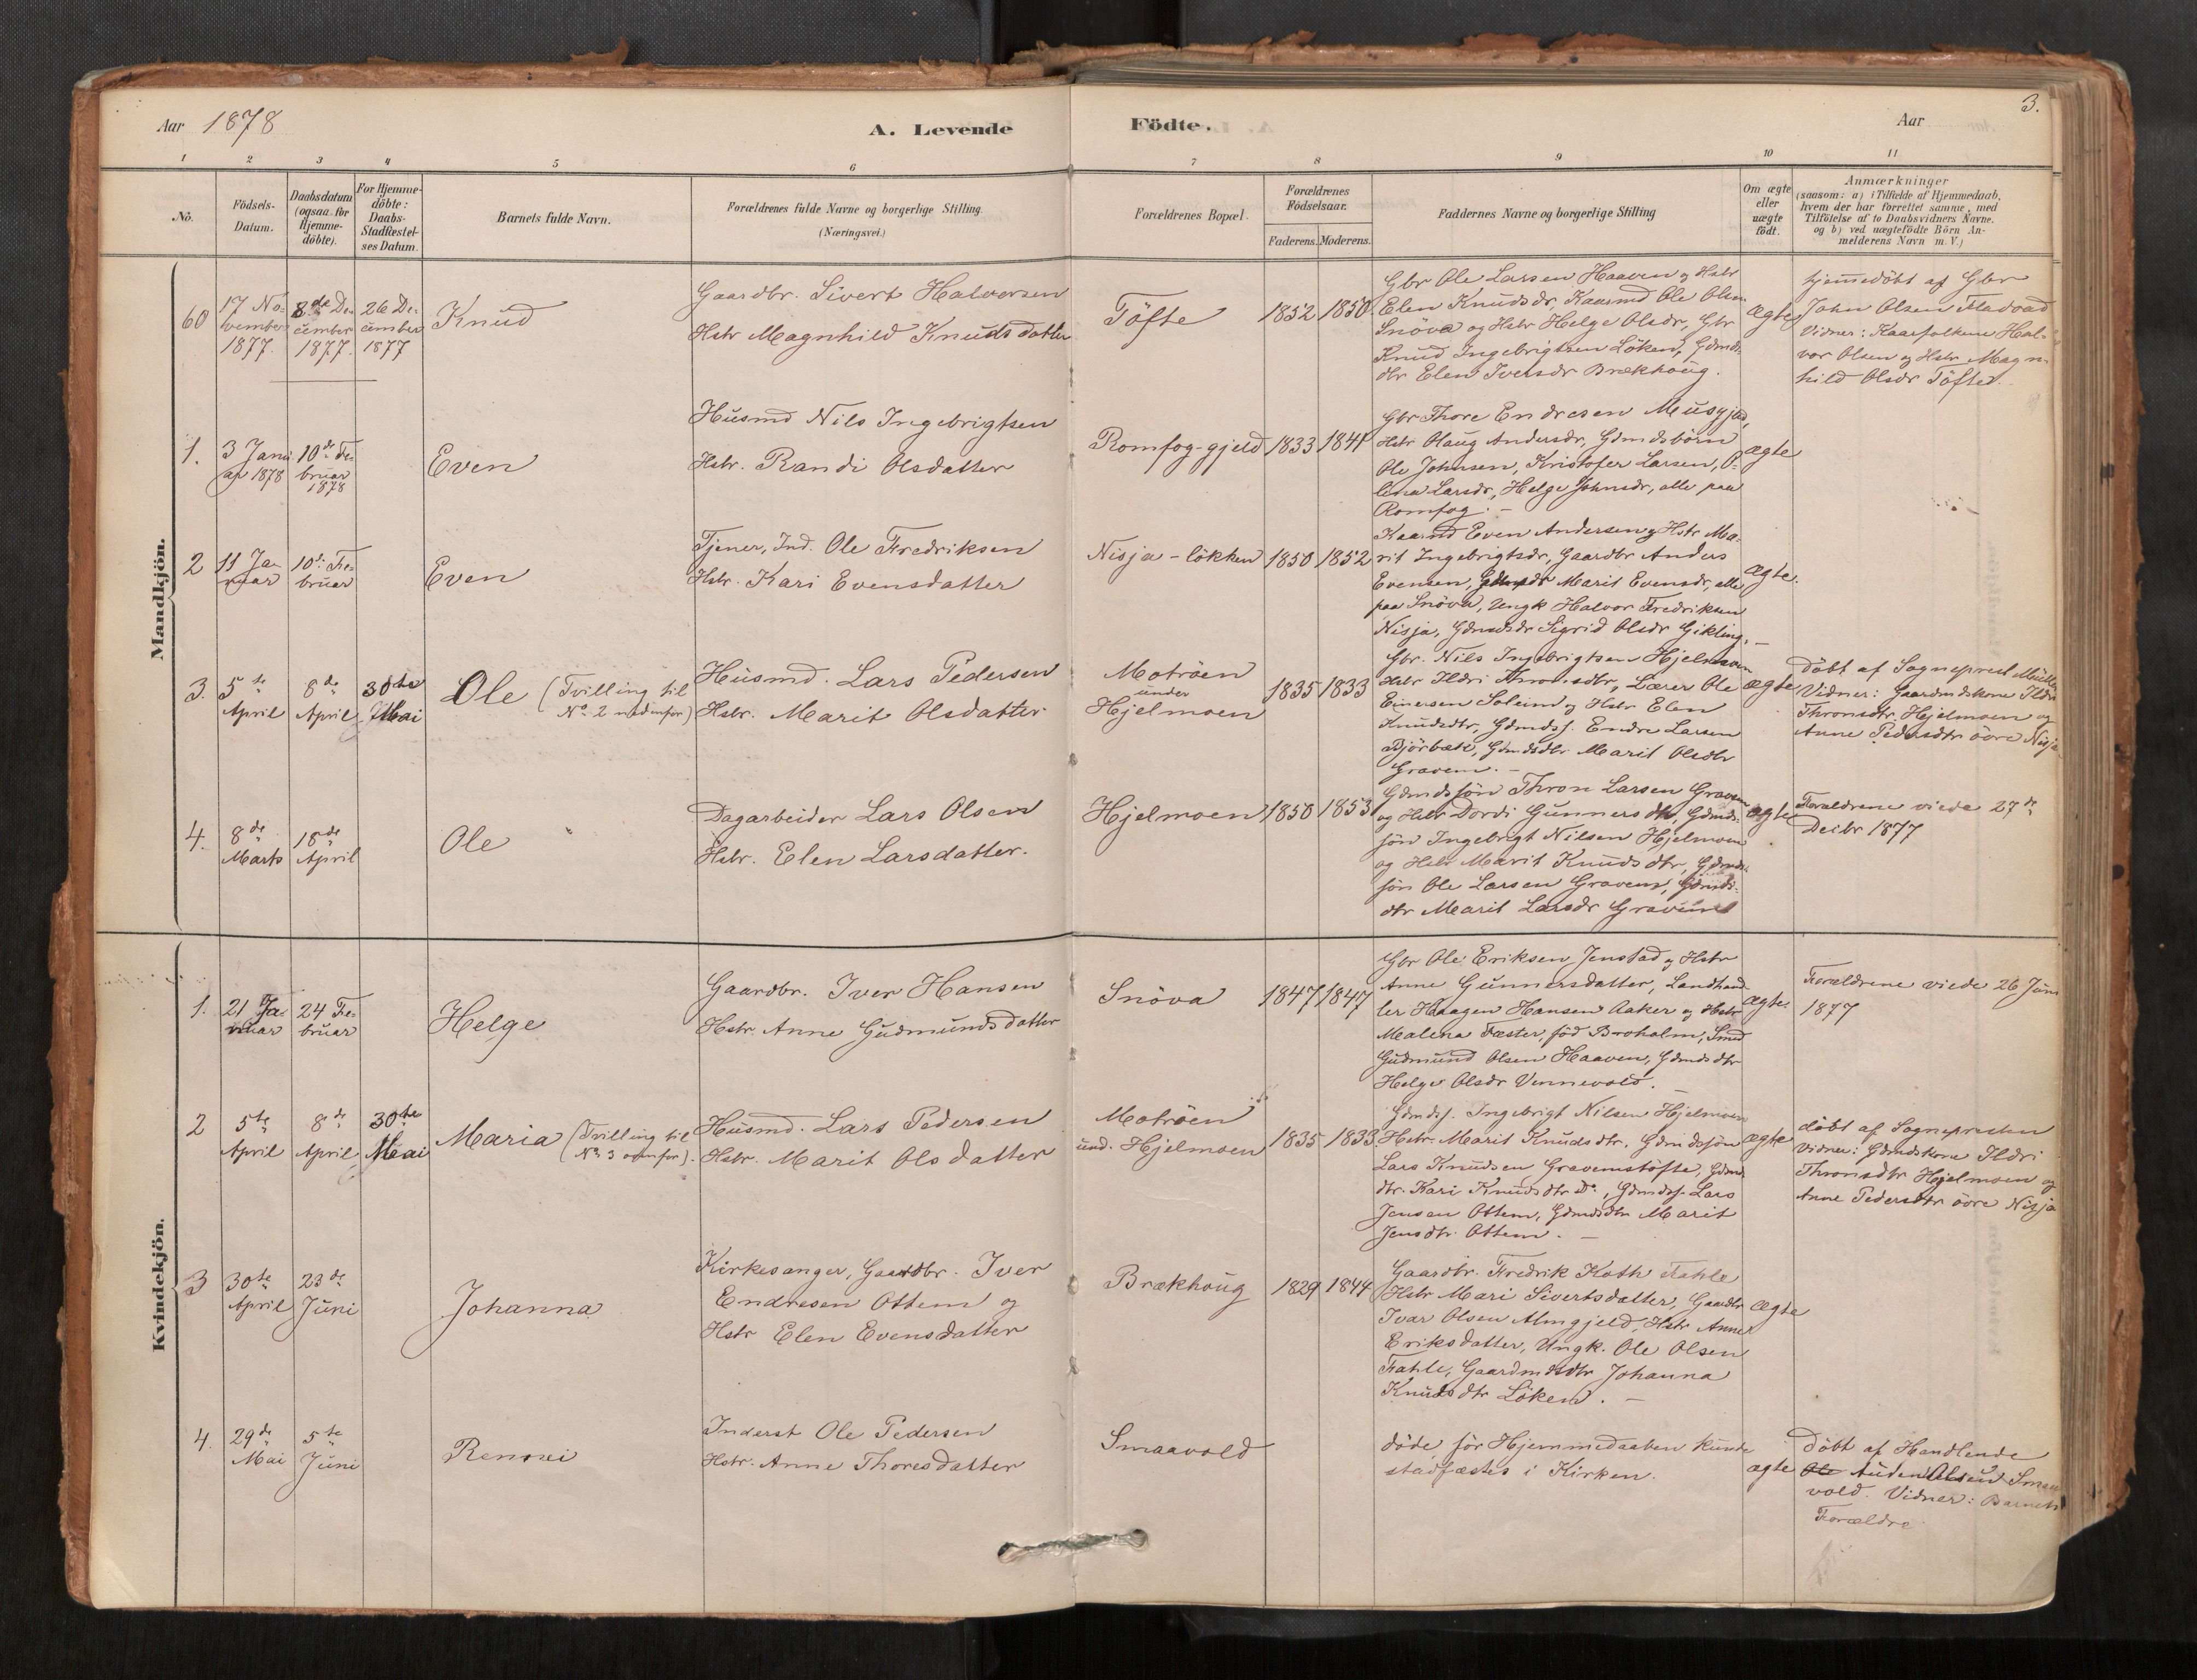 Aar 1878
A. Levende
Födte.
Aar
3.
1 2 3 4 5 6 7 8 9 10 11
No.
Födsels-
Datum.
Daabsdatum
(ogsaa for
Hjemme-
döbte).
For Hjemme-
döbte:
Daabs-
Stadfæstel-
ses Datum.
Barnets fulde Navn.
Forældrenes fulde Navne og borgerlige Stilling.
(Næringsvei.)
Forældrenes Bopæl.
Forældrenes
Födselsaar.
Faderens. Moderens.
Faddernes Navne og borgerlige Stilling
Om ægte
eller
uægte
födt.
Anmærkninger
(saasom: a) i Tilfælde af Hjemmedaab,
hvem der har forrettet samme, med
Tilföielse af to Daabsvidners Navne.
og b) ved uægtefödte Börn An-
melderens Navn m. V.)
Mandkjön.
60
17 No-
vember
1877.
8de De-
cember
1877.
26 De-
cember
1877
Knud
Gaardbr. Sivert Halvorsen
Hstr Magnhild Knudsdatter
Töfte
1852 1850
Gbr Ole Larsen Haaven og Hstr
Elen Knudsdr, Kaarmd Ole Olsen
Snöva og Hstr Helge Olsdr, Gbr
Knud Ingebrigtsen Löken, Gdmds-
dtr Elen Iversdr Brækhoug.
ægte
hjemmedöbt af Gbr
John Olsen Fladvad
Vidner: Kaarfolkene Hal-
vor Olsen og Hstr Magn-
hild Olsdr Töfte.
1.
3 Janu
ar 1878
10de Fe-
bruar
1878
Even
Husmd Nils Ingebrigtsen
Hstr. Randi Olsdatter
Romfog-gjeld
1833 1841
Gbr Thore Endresen Musgjerd,
Hstr Olaug Andersdr, Gdmdsbörn
Ole Johnsen, Kristofer Larsen,
Larsdr, Helge Johnsdr, alle paa
Romfog.-
ægte
2
11 Ja-
nuar
10de Fe-
bruar
Even
Tjener, Ind. Ole Fredriksen
Hstr. Kari Evensdatter
Nisja-lökken
1850 1852
Kaarmd Even Andersen og Hstr Ma-
rit Ingebrigtsdr, Gaardbr Anders
Evensen, Gdmdsdr Marit Evensdr, alle
paa Snöva, Ungk Halvor Fredriksen
Nisja, Gdmdsdr Sigrid Olsdr Gikling.-
ægte.
3.
5te
April
8de
April
30te
Mai
Ole (Tvilling til
No. 2 nedenfor)
Husmd. Lars Pedersen
Hstr. Marit Olsdatter
Moträen
under
Hjelmoen
1835 1833
Gbr. Nils Ingebrigtsen Hjelmoen
Hstr Ildri Thronsdtr, Lærer Ole
Einersen Soleim og Hstr Elen
Knudsdtr, Gdmdss. Endre Larsen
Björbæk, Gdmdsdtr Marit Olsdtr
Gravem.-
ægte
döbt af Sogneprest Müller
Vidner: Gaardmdskone Ildri
Thronsdtr Hjelmoen og
Anne Pedersdtr övre Nisja
4.
8de
Marts
18de
April
Ole
Dagarbeider Lars Olsen
Hstr. Elen Larsdatter.
Hjelmoen
1850 1853
Gdmdssön Thron Larsen Gravem
og Hstr Dordi Gunnersdtr, Gdmds-
sön Ingebrigt Nilsen Hjelmoen
og Hstr Marit Knudsdtr, Gdmds-
sön Ole Larsen Gravem, Gdmds-
dtr Marit Larsdr Gravem
ægte
Forældrene viede 27de
Decbr 1877
Kvindekjön.
1.
21 Ja-
nuar
24 Fe-
bruar
Helge
Gaardbr. Iver Hansen
Hstr. Anne Gudmundsdatter
Snöva
1847 1847
Gbr Ole Eriksen Jenstad og Hstr
Anne Gunnersdatter, Landhand-
ler Haagen Hansen Aaker og Hstr
Malena Fæster, föd Broholm, Smed
Gudmund Olsen Haaven, Gdmdsdtr
Helge Olsdr Vennevold.
ægte.
Forældrene viede 26 Juni
1877
2
5te
April
8de
April
30te
Mai
Maria (Tvilling til
No. 3 ovenfor).
Husmd. Lars Pedersen
Hstr. Marit Olsdatter
Moträen
und. Hjelmoen
1835 1833
Gdmdss. Ingebrigt Nilsen Hjelmoen
Hstr. Marit Knudsdtr, Gdmdssön
Lars Knudsen Gravemstöfte, Gdmds
dtr. Kari Knudsdtr Do., Gdmdss. Lars
Jensen Ottem, Gdmdsdtr Marit
Jensdtr. Ottem.-
ægte
döbt af Sognepresten
Vidner: Gdmdskone Ildri
Thronsdtr Hjelmoen og
Anne Pedersdtr övre Nisja
3
30te
April
23de
Juni
Johanna
Kirkesanger, Gaardbr. Iver
Endresen Ottem og
Hstr Elen Evensdatter
Brækhoug
1829 1844
Gaardbr. Fredrik Koth Fahle
Hstr Mari Sivertsdatter, Gaardbr
Ivar Olsen Almgjeld, Hstr Anne
Eriksdatter, Ungk. Ole Olsen
Fahle, Gaardmdsdtr Johanna
Knudsdtr Löken.-
ægte
4.
29de
Mai
5te
Juni
Renovi
Inderst Ole Pedersen
Hstr. Anne Thoresdatter
Smaavold
döde för Hjemmedaaben kunde
stadfæstes i Kirken.
ægte
döbt af Handlende
Ole Auden Olsen Smaa
vold. Vidner: Barnets
Forældre